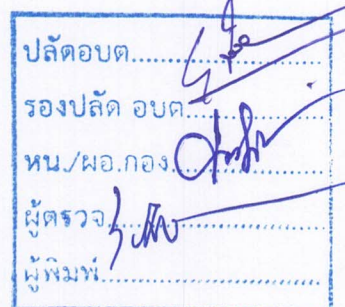 ปลัดอบต....................
รองปลัด อบต....................
หน./ผอ.กอง....................
ผู้ตรวจ....................
ผู้พิมพ์....................